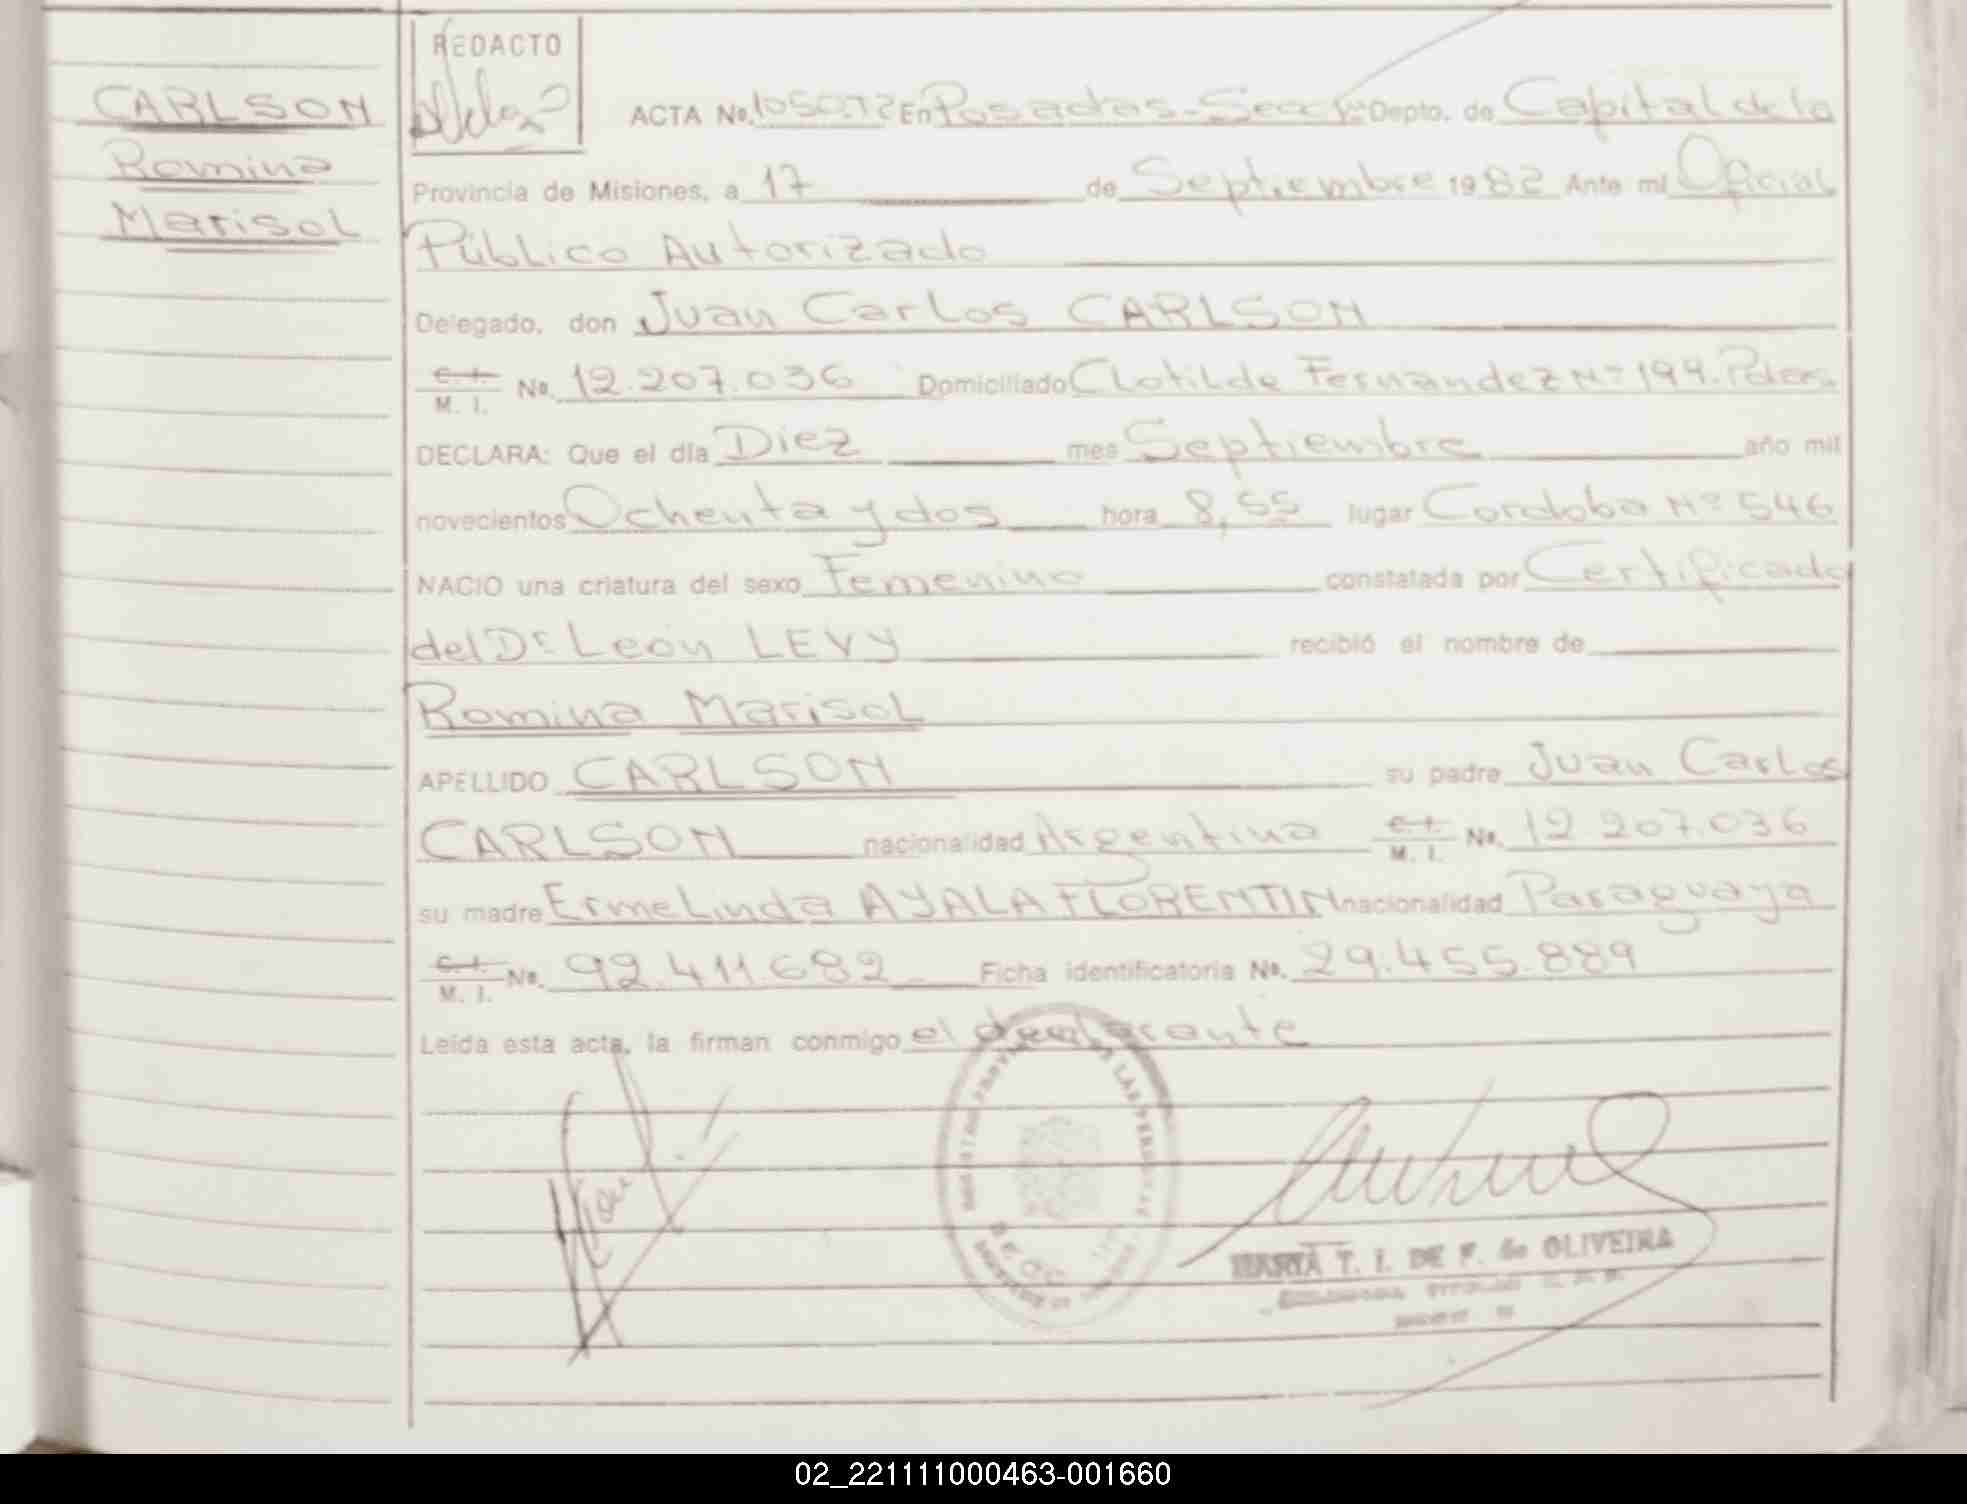 CARLSON
Romina
Marisol
REDACTO
ACTA No. En Posadas - Secc 1ra Depto. de Capital de la
Provincia de Misiones, a 17 de Septiembre 1982 Ante mi Oficial
Público Autorizado
Delegado, don Juan Carlos CARLSON
C. I. M. I. No. 12.207.036 Domiciliado Clotilde Fernandez Nº 199. Pdas.
DECLARA: Que el día Diez mes Septiembre año mil
novecientos Ochenta y dos hora 8,55 lugar Cordoba Nº 546
NACIO una criatura del sexo Femenino constatada por Certificado
del Dr Leon LEVY recibió el nombre de
Romina Marisol
APELLIDO CARLSON su padre Juan Carlos
CARLSON nacionalidad Argentina C. I. M. I. No. 12 207.036
su madre Ermelinda AYALA FLORENTIN nacionalidad Paraguaya
C. I. M. I. No. 92.411.682 Ficha identificatoria No. 29.455.889
Leída esta acta, la firman conmigo el declarante
MARIA T. I. DE F. de OLIVEIRA
02_221111000463-001660